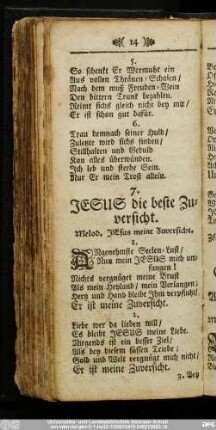 14
5.
So schenkt Er Wermuht ein
Aus vollen Thränen-Schalen/
Nach dem muß Freuden-Wein
Den bittern Trunk bezahlen.
Reimt sichs gleich nicht bey mir/
Er ist schon gut dafür.
6.
Trau demnach seiner Huld/
Zuletzt wird sichs finden/
Stillhalten und Gedult
Kan alles überwinden.
Ich leb und sterbe Sein.
Nur Er mein Trost allein.
7.
JESUS die beste Zu-
versicht.
Melod. JEsus meine Zuversicht.
1.
ANgenehmste Seelen-Lust/
Nun mein JESUS mich um-
fangen!
Nichts vergnüget meine Brust
Als mein Heyland/ mein Verlangen;
Hertz und Hand bleibt Ihm verpflicht/
Er ist meine Zuversicht.
2.
Liebe wer da lieben will/
Es bleibt JESUS meine Liebe.
Nirgends ist ein besser Ziel/
Als bey diesem süssen Triebe;
Gold und Welt vergnügt mich nicht/
Er ist meine Zuversicht.
3. Bey